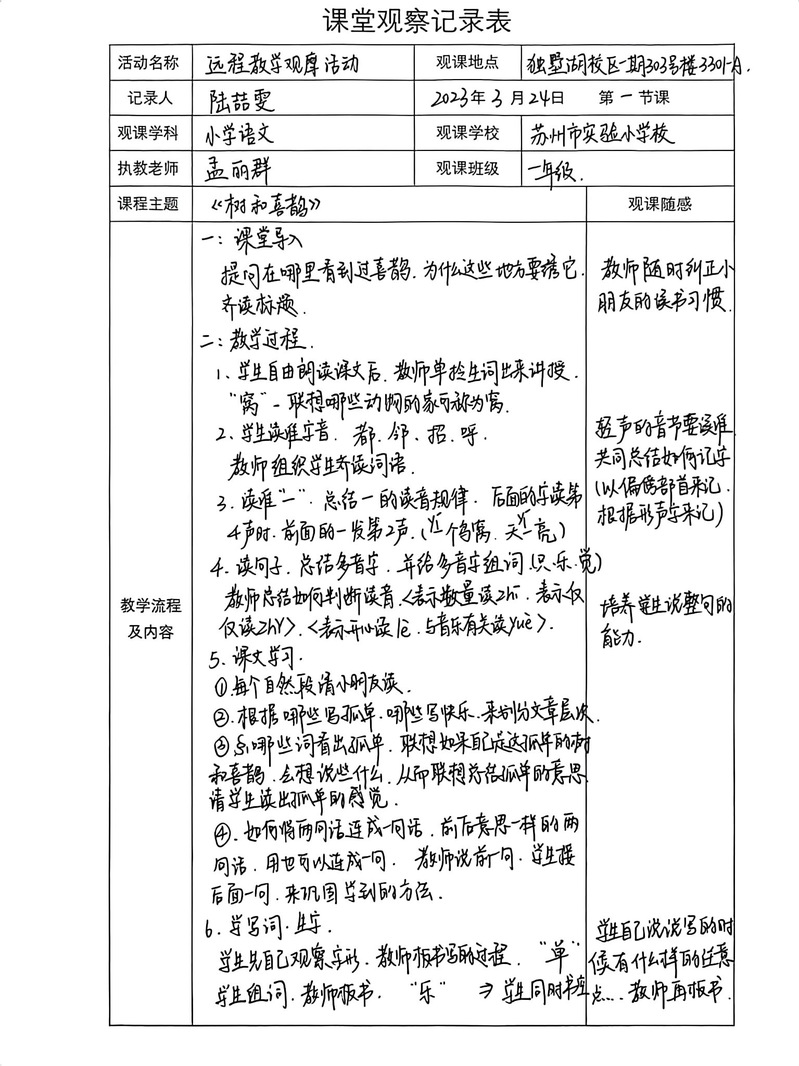 课堂观察记录表
活动名称 远程教学观摩活动 观课地点 独墅湖校区一期303号楼3301-A.
记录人 陆喆雯 2023年3月24日 第一节课
观课学科 小学语文 观课学校 苏州市实验小学校
执教老师 孟丽群 观课班级 一年级.
课程主题 《树和喜鹊》 观课随感
教学流程
及内容
一：课堂导入
提问在哪里看到过喜鹊.为什么这些地方要 它.
齐读标题.
二：教学过程.
1、学生自由朗读课文后.教师单拎生词出来讲授.
“窝”-联想哪些动物的家可称为窝.
2、学生读准字音. 都.邻.招.呼.
教师组织学生齐读词语.
3.读准“一”.总结一的读音规律. 后面的字读第
4声时.前面的一发第2声.(yí一个鸟窝.天yí一亮)
4.读句子.总结多音字.并给多音字组词(只.乐.觉)
教师总结如何判断读音.<表示数量读zhī.表示仅
仅读zhǐ>.<表示开心读lè.与音乐有关读yuè>.
5.课文学习.
①每个自然段请小朋友读.
②.根据哪些写孤单.哪些写快乐.来划分文章层次.
③从哪些词看出孤单.联想如果自己是这孤单的树
和喜鹊.会想说些什么.从而联想总结孤单的意思
请学生读出孤单的感觉.
④.如何将两句话连成一句话.前后意思一样的两
句话.用也可以连成一句. 教师说前一句.学生接
后面一句.来巩固学到的方法.
6.学写词.生字.
学生先自己观察字形.教师板书写的过程. “单”
学生组词.教师板书. “乐” ⇒学生同时书空
教师随时纠正小
朋友的读书习惯.
轻声的音节要读准.
共同总结如何记字
(以偏旁部首来记.
根据形声字来记)
培养学生说整句的
能力.
学生自己说说写的时
候有什么样的注意
点....教师再板书.